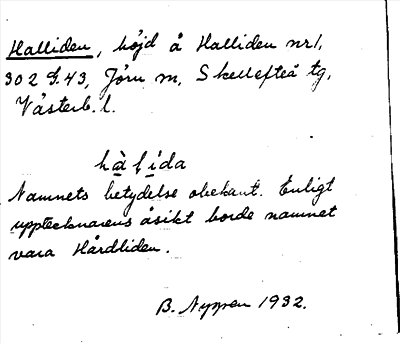 Halliden, höjd å Halliden nr1,
302 G.43, Jörn sn, Skellefteå tg,
Västerb. l.
hàlída
Namnets betydelse obekant. Enligt
upptecknarens åsikt borde namnet
vara Hårdliden.
B. Nyppen 1932.